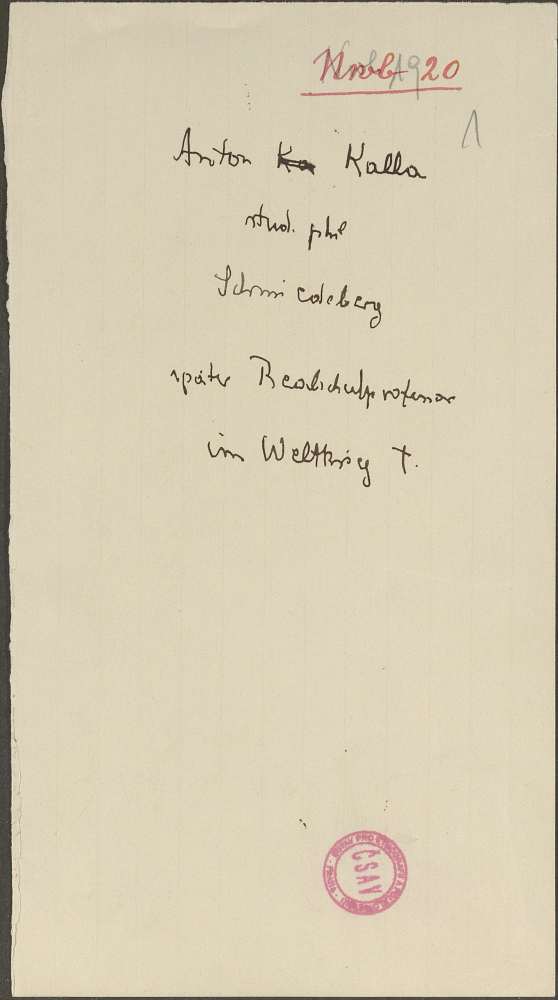 20
1
Anton Ka Kalla
stud. phil
Schmiedeberg
später Realschulprofessor
im Weltkrieg †.
ČSAV